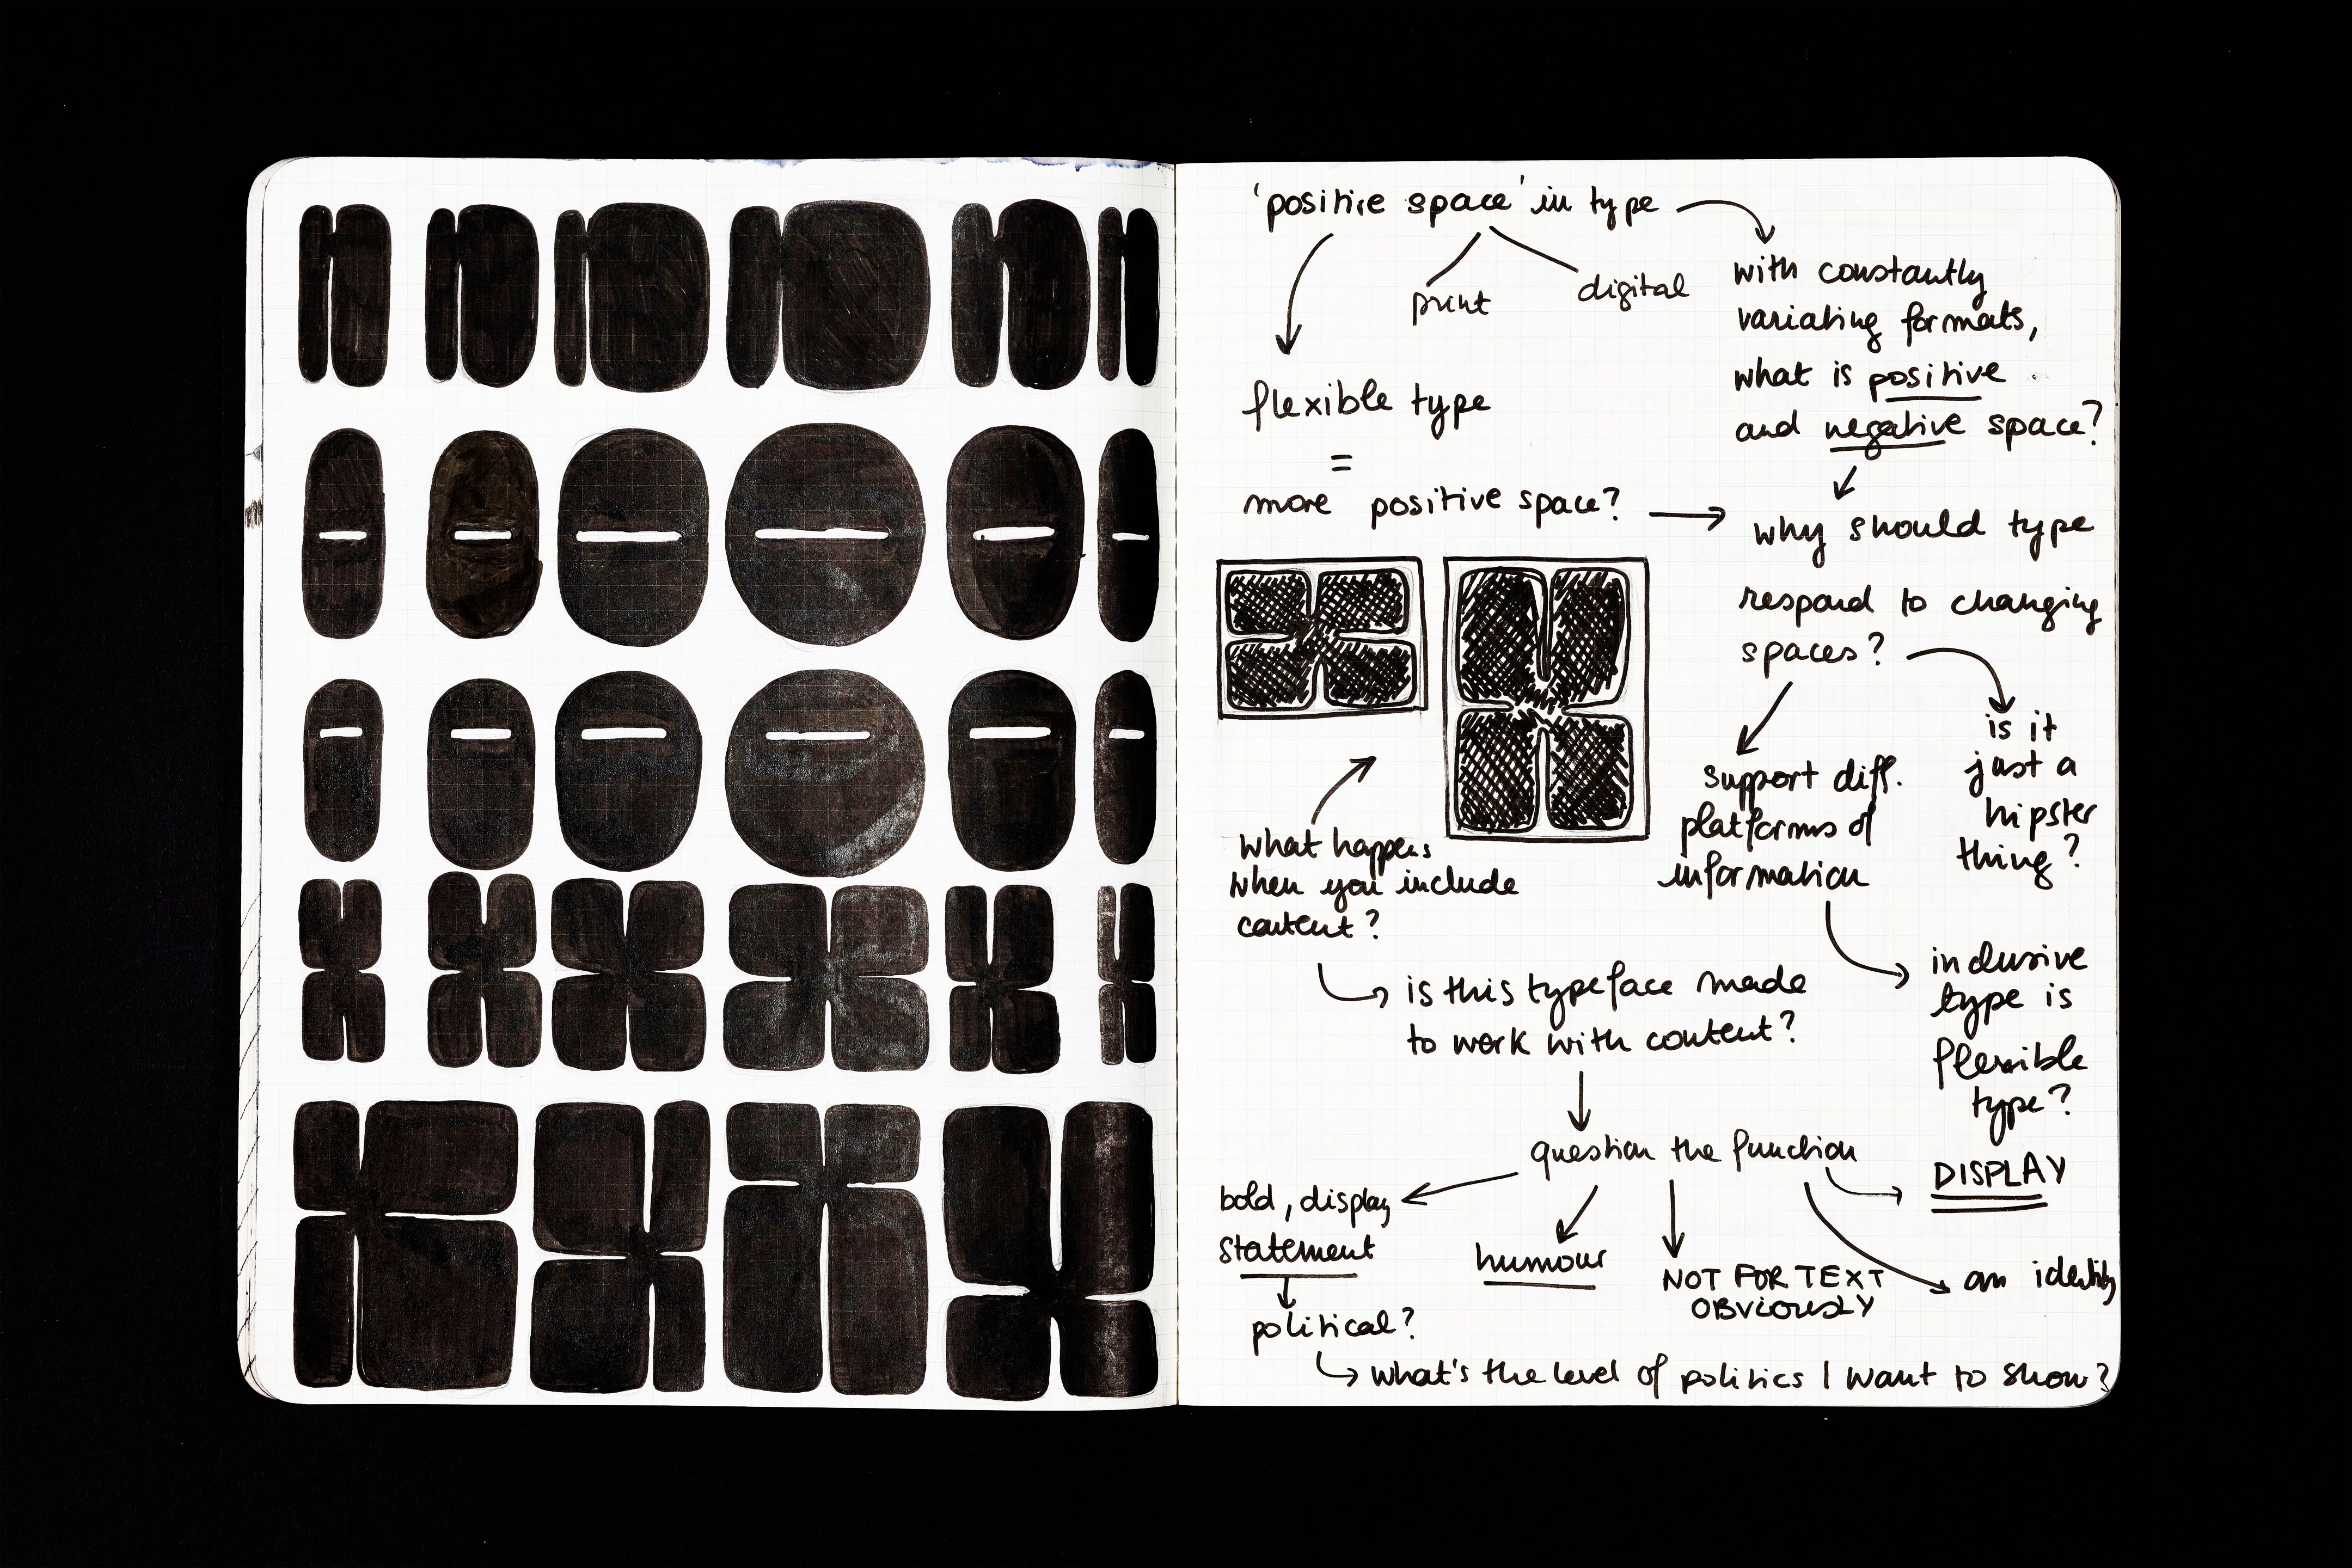 'positive space' in type
print
digital
with constantly
variating formats,
what is positive
and negative space?
flexible type
=
more positive space?
why should type
respond to changing
spaces?
is it
just a
hipster
thing?
support diff.
platforms of
information
what happens
when you include
content?
is this typeface made
to work with content?
inclusive
type is
flexible
type?
question the function
DISPLAY
bold, display
statement
humour
NOT FOR TEXT
OBVIOUSLY
an identity
political?
what's the level of politics I want to show?